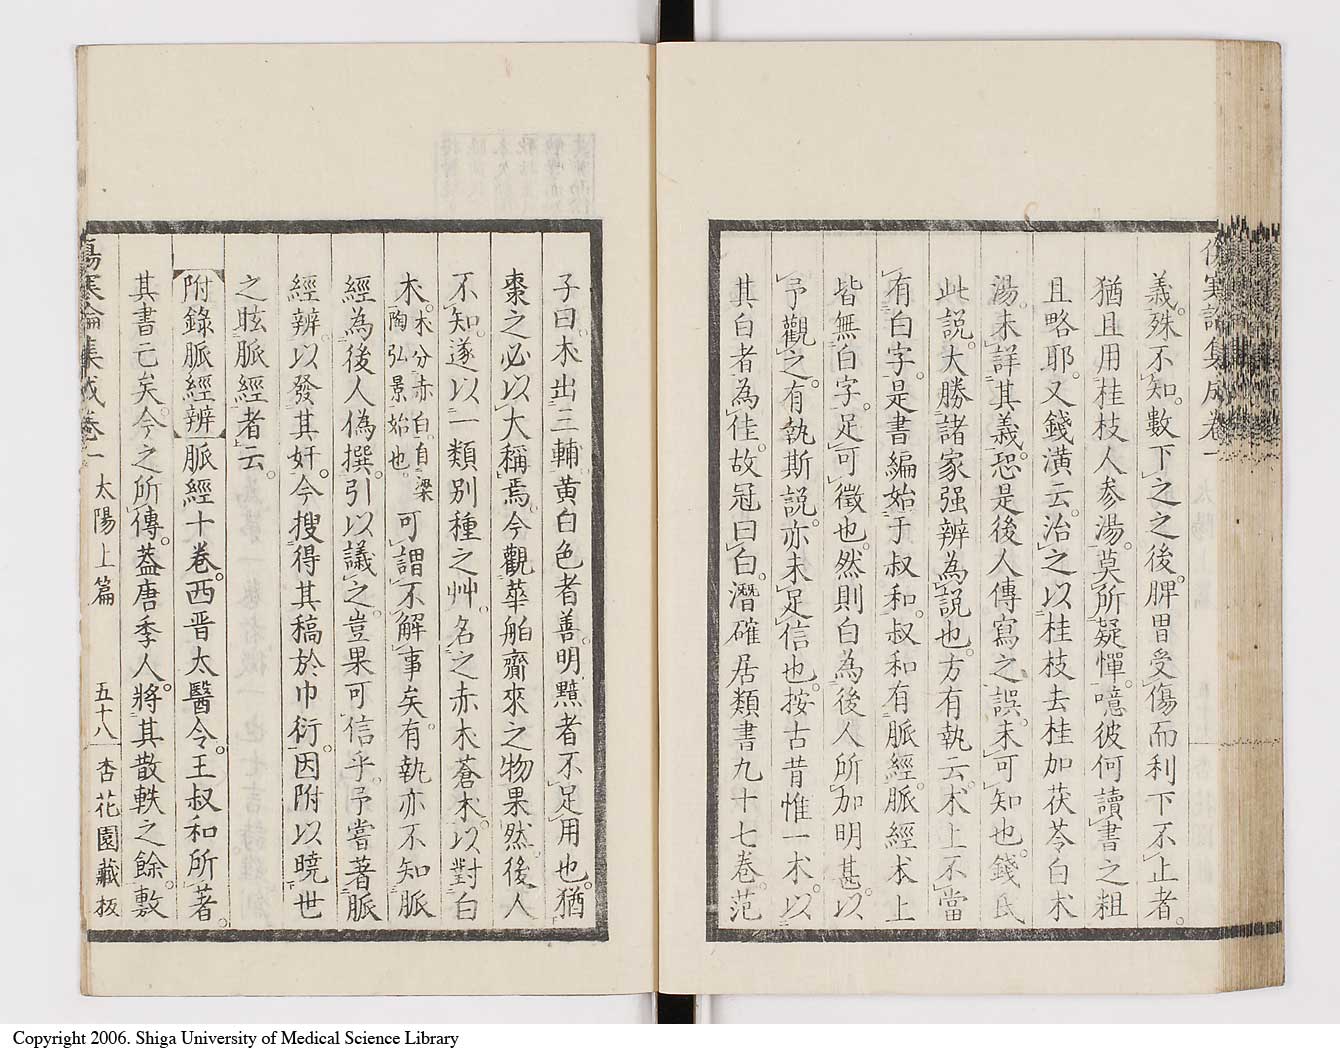 義。殊不知。數下之之後。脾胃受傷而利下不止者。
猶且用桂枝人參湯。莫所疑憚。噫彼何讀書之粗
且略耶。又錢潢云。治之以桂枝去桂加茯苓白朮
湯。未詳其義。恐是後人傳寫之誤。未可知也。錢氏
此說。大勝諸家强辨為說也。方有執云。朮上不當
有白字。是書編始于叔和。叔和有脈經。脈經朮上
皆無白字。足可徵也。然則白為後人所加明甚。以
予觀之。有執斯說。亦未足信也。按古昔惟一朮。以
其白者為佳。故冠曰白。潛確居類書九十七卷。范
子曰。朮出三輔黃白色者善。明黯者不足用也。猶
棗之必以大稱焉。今觀華舶齎來之物果然。後人
不知。遂以一類別種之艸。名之赤朮蒼朮。以對白
朮。朮分赤白。自梁陶弘景始也。可謂不解事矣。有執亦不知脈
經為後人偽撰。引以議之。豈果可信乎。予嘗著脈
經辨。以發其奸。今搜得其稿於巾衍。因附以曉世
之眩脈經者云。
附錄脈經辨 脈經十卷。西晋太醫令。王叔和所著。
其書亡矣。今之所傳。葢唐季人。將其散軼之餘。敷
傷寒論集成卷一 太陽上篇 五十八 杏花園藏板